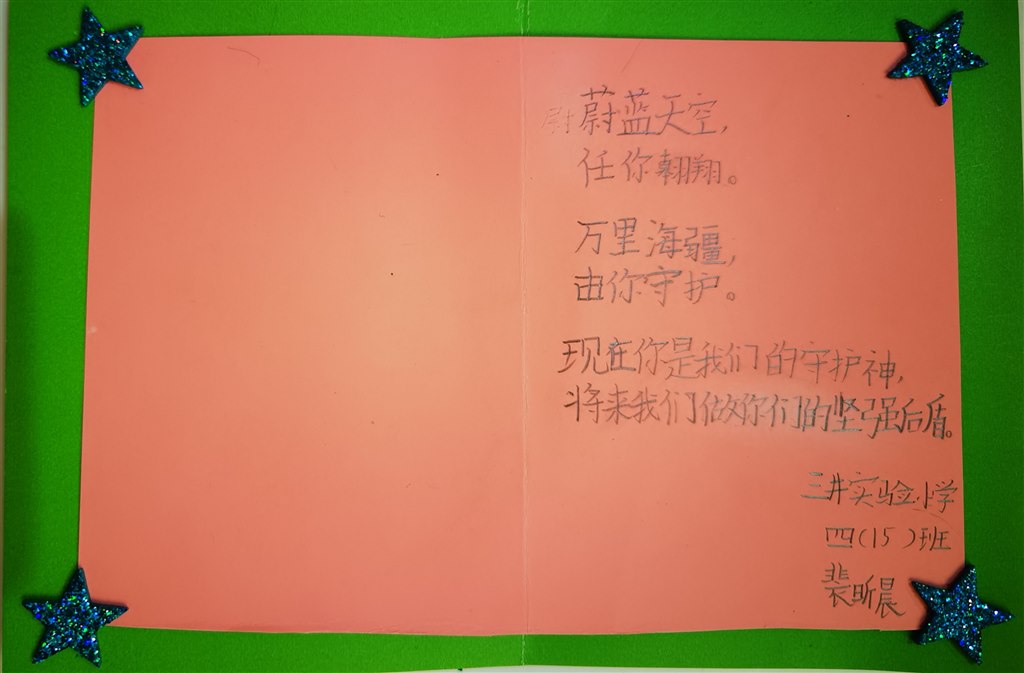 蔚蓝天空，
任你翱翔。
万里海疆，
由你守护。
现在你是我们的守护神，
将来我们做你们的坚强后盾。
三井实验小学
四(15)班
裴昕晨